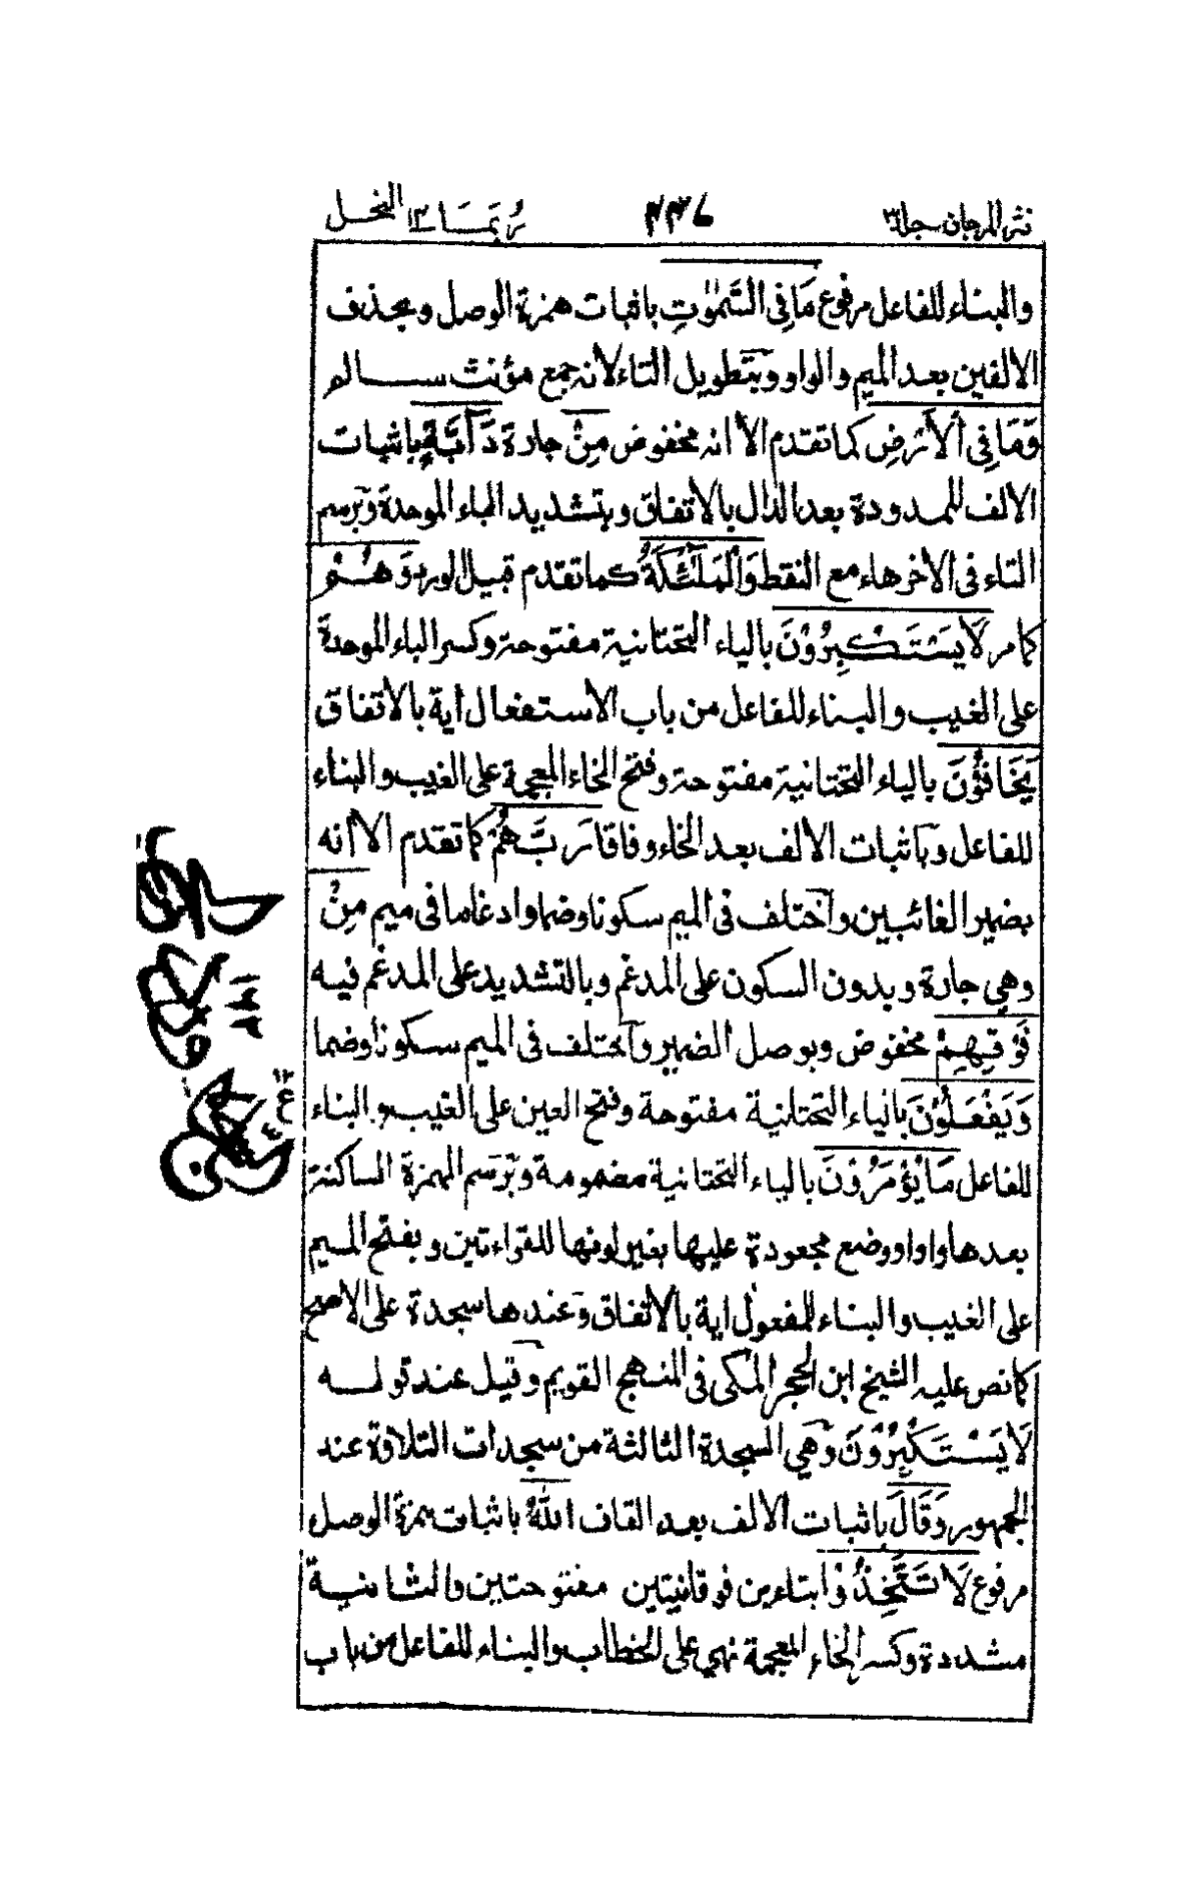 نثر المرجان جلد٣ ٤٣٧ رُبَمَا ١٤ النحل
والبناء للفاعل مرفوع مَا فِى السَّمٰوٰتِ باثبات همزة الوصل وبحذف
الالفين بعد الميم والواو وبتطويل التاء لانه جمع مؤنث سالم
وَمَا فِى الْاَرْضِ كما تقدم الا انه مخفوض مِنْ جارة دَآبَّةٍ باثبات
الالف الممدودة بعد الدال بالاتفاق وبتشديد الباء الموحدة وترسم
التاء فى الاخر هاء مع النقط وَالْمَلٰٓئِكَةُ كما تقدم قبيل الورد وَهُمْ
كما مر لَا يَسْتَكْبِرُوْنَ بالياء التحتانية مفتوحة وكسر الباء الموحدة
على الغيب والبناء للفاعل من باب الاستفعال اية بالاتفاق
يَخَافُوْنَ بالياء التحتانية مفتوحة وفتح الخاء المعجمة على الغيب والبناء
للفاعل وباثبات الالف بعد الخاء وفاقا رَبَّهُمْ كما تقدم الا انه
بضمير الغائبين واختلف فى الميم سكونا وضما وادغاما فى ميم مِنْ
وهي جارة وبدون السكون على المدغم وبالتشديد على المدغم فيه
فَوْقِهِمْ مخفوض وبوصل الضمير واختلف فى الميم سكونا وضما
وَيَفْعَلُوْنَ بالياء التحتانية مفتوحة وفتح العين على الغيب والبناء
للفاعل مَا يُؤْمَرُوْنَ بالياء التحتانية مضمومة وترسم الهمزة الساكنة
بعدها واوا ووضع مجعودة عليها بغير لونها للقراءتين وبفتح الميم
على الغيب والبناء للمفعول اية بالاتفاق وعندها سجدة على الاصح
كما نص عليه الشيخ ابن الحجر المكى فى المنهج القويم وقيل عند قوله
لَا يَسْتَكْبِرُوْنَ وهي السجدة الثالثة من سجدات التلاوة عند
الجمهور وَقَالَ باثبات الالف بعد القاف اللّٰهُ باثبات همزة الوصل
مرفوع لَا تَتَّخِذُوْا بتاءين فوقانيتين مفتوحتين والثانية
مشددة وكسر الخاء المعجمة نهي على الخطاب والبناء للفاعل من باب